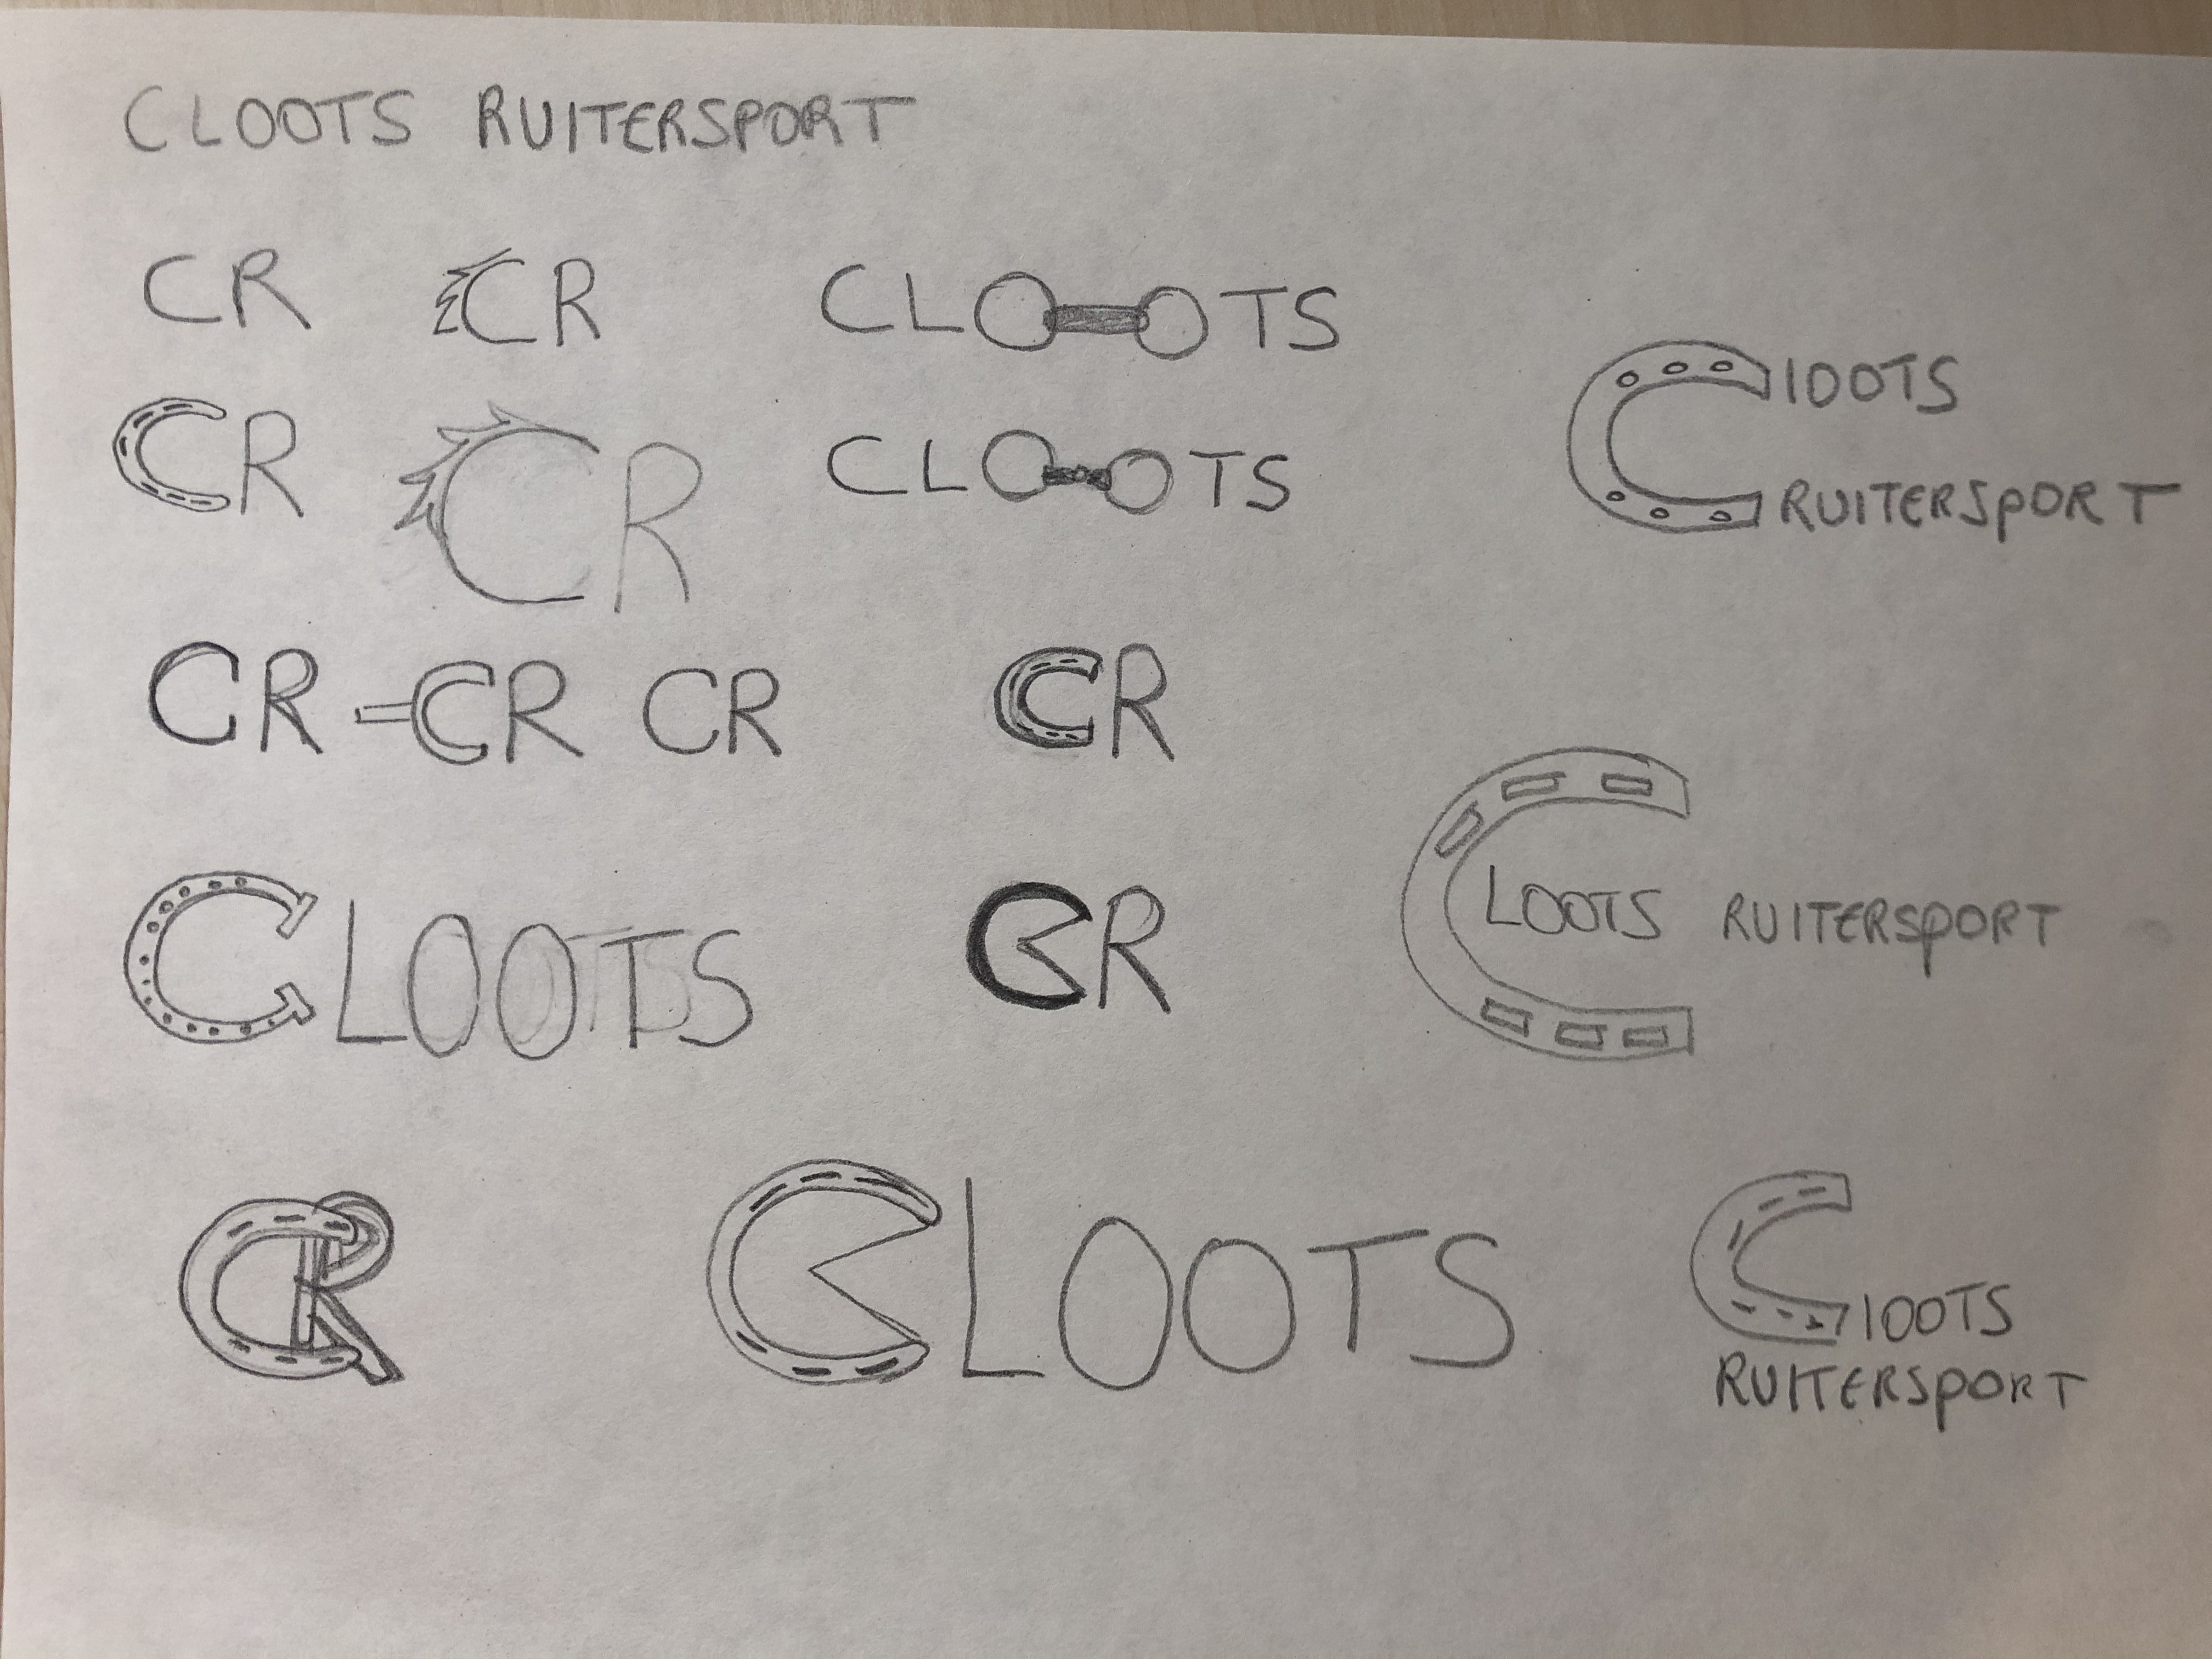 CLOOTS RUITERSPORT
CR
CR
CLOOTS
CR
CR
CLOOTS
CLOOTS
RUITERSPORT
CR
CR
CR
CR
CLOOTS
CR
CLOOTS RUITERSPORT
CR
CLOOTS
CLOOTS
RUITERSPORT